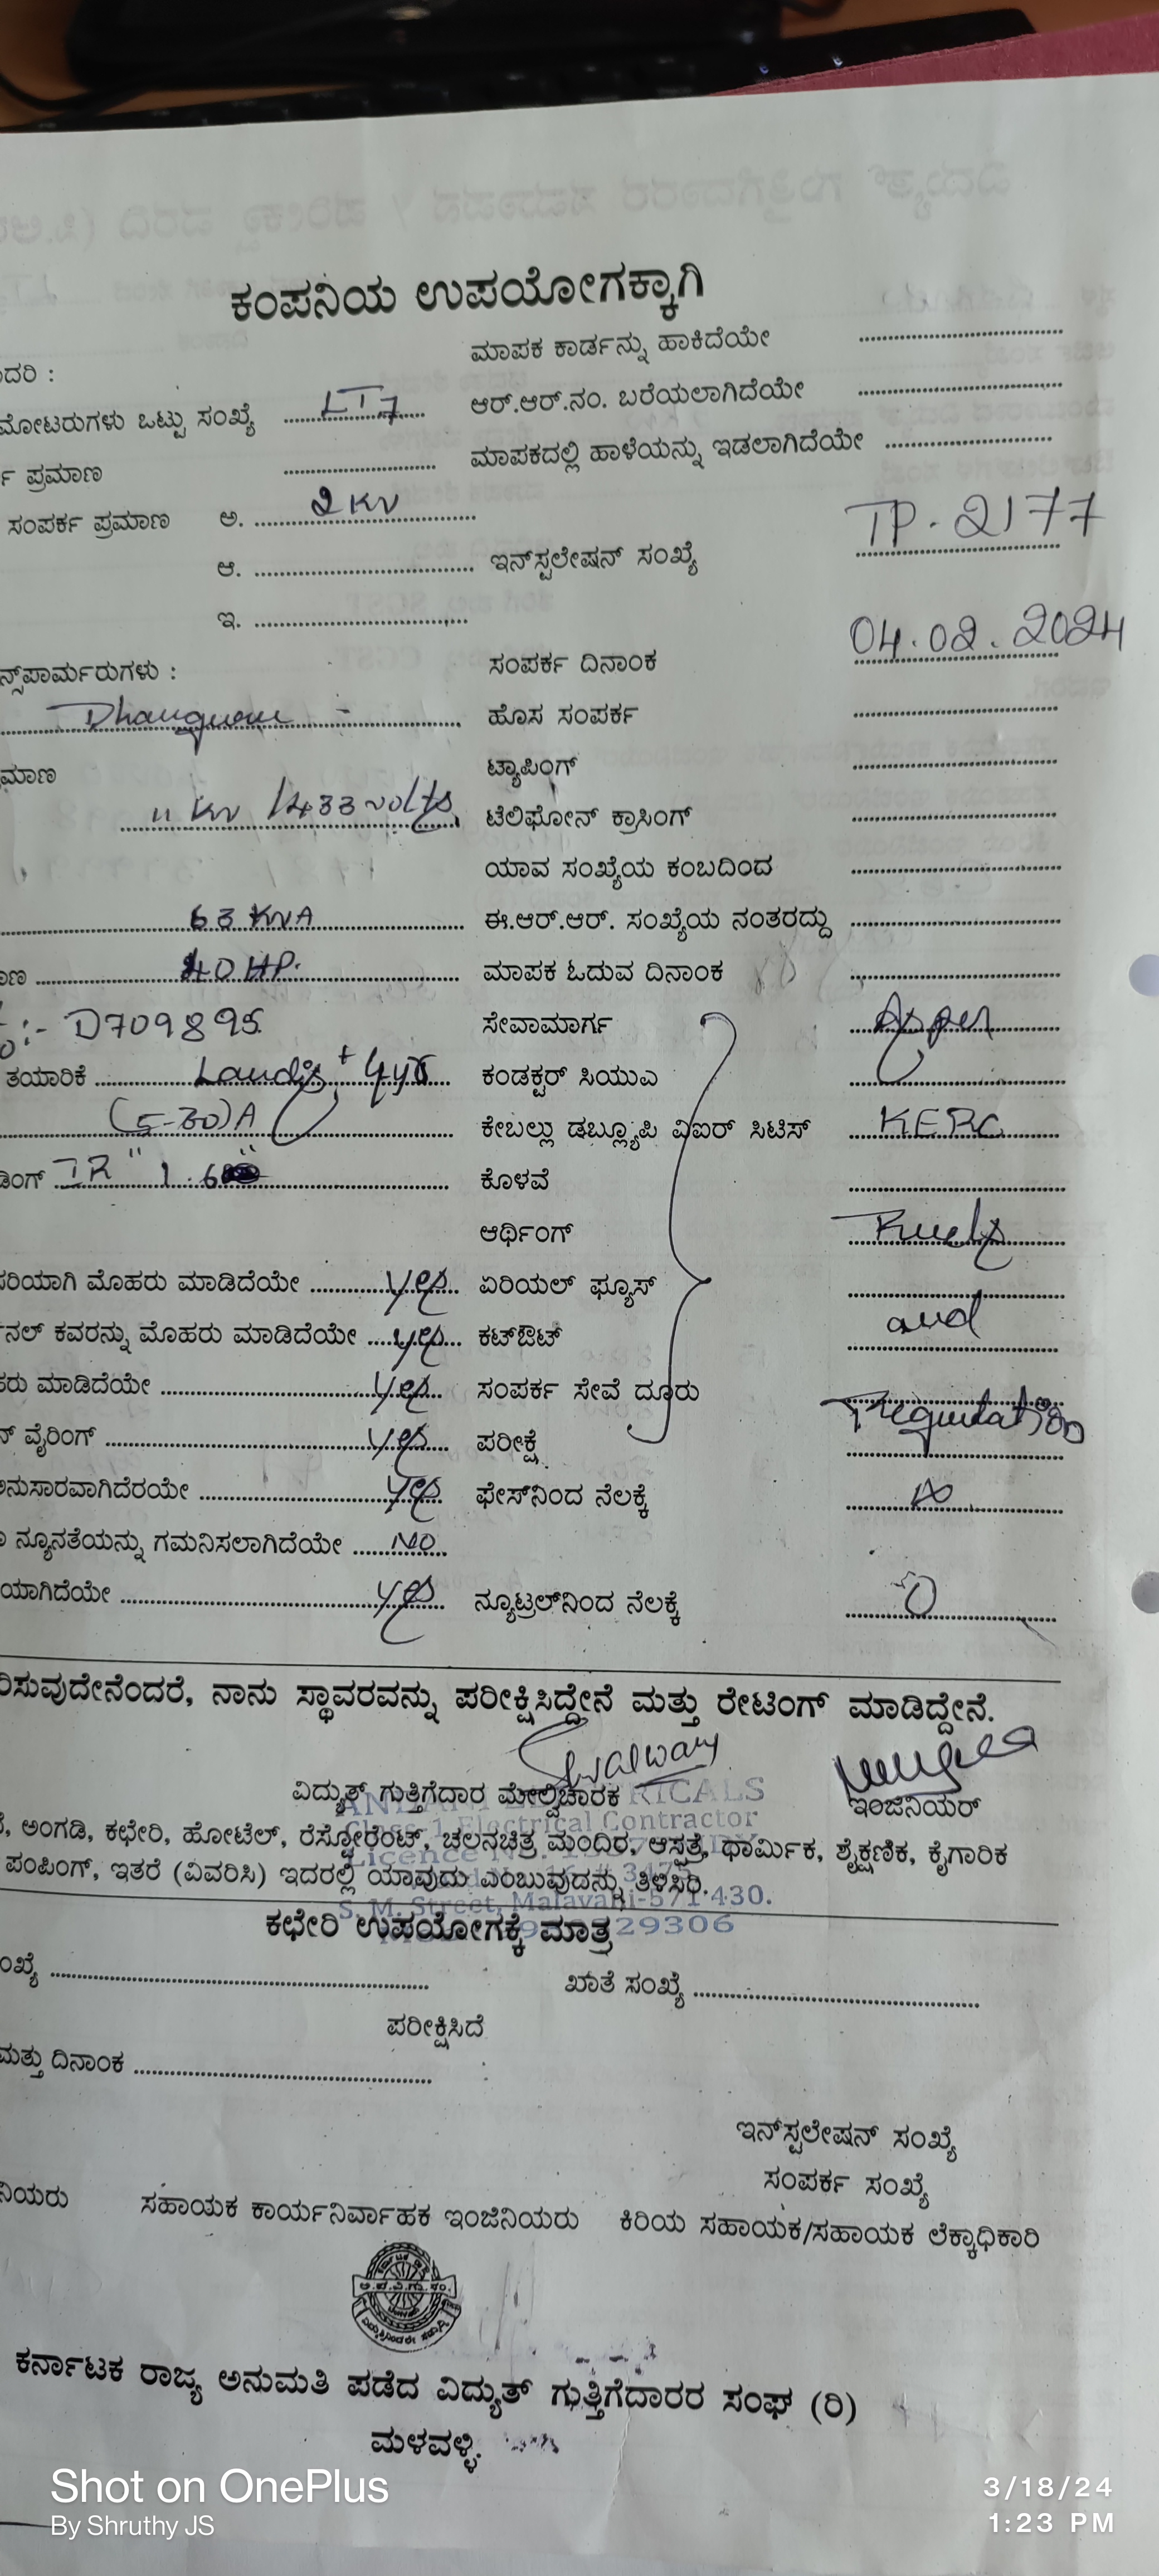 ಕಂಪನಿಯ ಉಪಯೋಗಕ್ಕಾಗಿ
ಮಾಪಕ ಕಾರ್ಡನ್ನು ಹಾಕಿದೆಯೇ
ದರಿ :
ಮೋಟರುಗಳು ಒಟ್ಟು ಸಂಖ್ಯೆ LT7 ಆರ್.ಆರ್.ನಂ. ಬರೆಯಲಾಗಿದೆಯೇ
ಪ್ರಮಾಣ ಮಾಪಕದಲ್ಲಿ ಹಾಳೆಯನ್ನು ಇಡಲಾಗಿದೆಯೇ
ಸಂಪರ್ಕ ಪ್ರಮಾಣ ಅ. 2 KW
ಆ. ಇನ್‌ಸ್ಟಲೇಷನ್ ಸಂಖ್ಯೆ TP. 2177
ಇ.
ನ್ಸ್‌ಪಾರ್ಮರುಗಳು : ಸಂಪರ್ಕ ದಿನಾಂಕ 04.02.2024
ಹೊಸ ಸಂಪರ್ಕ
ಮಾಣ ಟ್ಯಾಪಿಂಗ್
11 KV /433 volts ಟೆಲಿಫೋನ್ ಕ್ರಾಸಿಂಗ್
ಯಾವ ಸಂಖ್ಯೆಯ ಕಂಬದಿಂದ
63 KVA ಈ.ಆರ್.ಆರ್. ಸಂಖ್ಯೆಯ ನಂತರದ್ದು
ಣ 40 HP. ಮಾಪಕ ಓದುವ ದಿನಾಂಕ
:- D709895 ಸೇವಾಮಾರ್ಗ As per
ತಯಾರಿಕೆ Landis + Gyr ಕಂಡಕ್ಟರ್ ಸಿಯುಎ
(5-30)A ಕೇಬಲ್ಲು ಡಬ್ಲ್ಯೂಪಿ ವಿಐರ್ ಸಿಟಿಸ್ KERC
ಡಿಂಗ್ IR " 1.6 ಕೊಳವೆ
ಆರ್ಥಿಂಗ್ Ruels
ಸರಿಯಾಗಿ ಮೊಹರು ಮಾಡಿದೆಯೇ yes ಏರಿಯಲ್ ಫ್ಯೂಸ್
ನಲ್ ಕವರನ್ನು ಮೊಹರು ಮಾಡಿದೆಯೇ yes ಕಟ್‌ಔಟ್ and
ಹರು ಮಾಡಿದೆಯೇ yes ಸಂಪರ್ಕ ಸೇವೆ ದೂರು
ನ್ ವೈರಿಂಗ್ yes ಪರೀಕ್ಷೆ Regulation
ಅನುಸಾರವಾಗಿದೆರಯೇ yes ಫೇಸ್‌ನಿಂದ ನೆಲಕ್ಕೆ ∞
ನ್ಯೂನತೆಯನ್ನು ಗಮನಿಸಲಾಗಿದೆಯೇ NO
ಯಾಗಿದೆಯೇ yes ನ್ಯೂಟ್ರಲ್‌ನಿಂದ ನೆಲಕ್ಕೆ 0
ರಿಸುವುದೇನೆಂದರೆ, ನಾನು ಸ್ಥಾವರವನ್ನು ಪರೀಕ್ಷಿಸಿದ್ದೇನೆ ಮತ್ತು ರೇಟಿಂಗ್ ಮಾಡಿದ್ದೇನೆ.
ವಿದ್ಯುತ್ ಗುತ್ತಿಗೆದಾರ ಮೇಲ್ವಿಚಾರಕ ಇಂಜಿನಿಯರ್
Class-1 Electrical Contractor
ಅಂಗಡಿ, ಕಛೇರಿ, ಹೋಟೆಲ್, ರೆಸ್ಟೋರೆಂಟ್, ಚಲನಚಿತ್ರ ಮಂದಿರ, ಆಸ್ಪತ್ರೆ, ಧಾರ್ಮಿಕ, ಶೈಕ್ಷಣಿಕ, ಕೈಗಾರಿಕ
Licence No.
ಪಂಪಿಂಗ್, ಇತರೆ (ವಿವರಿಸಿ) ಇದರಲ್ಲಿ ಯಾವುದು ಎಂಬುವುದನ್ನು ತಿಳಿಸಿರಿ.
S. M. Street, Malavalli-571 430.
ಕಛೇರಿ ಉಪಯೋಗಕ್ಕೆ ಮಾತ್ರ 29306
ಂಖ್ಯೆ ಖಾತೆ ಸಂಖ್ಯೆ
ಪರೀಕ್ಷಿಸಿದೆ
ಮತ್ತು ದಿನಾಂಕ
ಇನ್‌ಸ್ಟಲೇಷನ್ ಸಂಖ್ಯೆ
ಸಂಪರ್ಕ ಸಂಖ್ಯೆ
ನಿಯರು ಸಹಾಯಕ ಕಾರ್ಯನಿರ್ವಾಹಕ ಇಂಜಿನಿಯರು ಕಿರಿಯ ಸಹಾಯಕ/ಸಹಾಯಕ ಲೆಕ್ಕಾಧಿಕಾರಿ
ಕರ್ನಾಟಕ ರಾಜ್ಯ ಅನುಮತಿ ಪಡೆದ ವಿದ್ಯುತ್ ಗುತ್ತಿಗೆದಾರರ ಸಂಘ (ರಿ)
ಮಳವಳ್ಳಿ.
Shot on OnePlus
By Shruthy JS
3/18/24
1:23 PM